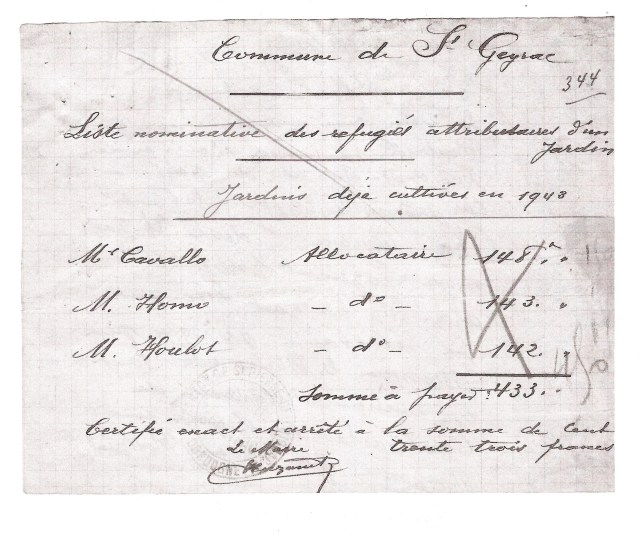 Commune de St Geyrac
344
Liste nominative des refugiés attributaires d'un
Jardin
Jardins déjà cultivés en 1943
Mr Cavallo Allocataire 148 "
M. Homo - do - 143. "
M. Houlot - do - 142. "
Somme à payer : 433. "
Certifié exact et arrêté à la somme de Cent
trente trois francs
Le Maire